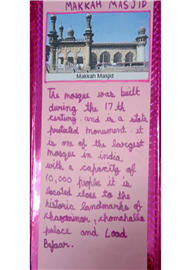 MAKKAH MASJID
Makkah Masjid
The mosque was built
during the 17th
century and is a state
protected monument it
is one of the largest
mosque in india,
with a capacity of
10,000 people it is
located close to the
historic landmarks of
charminar, chomahalla
palace and Laad
Bazaar.